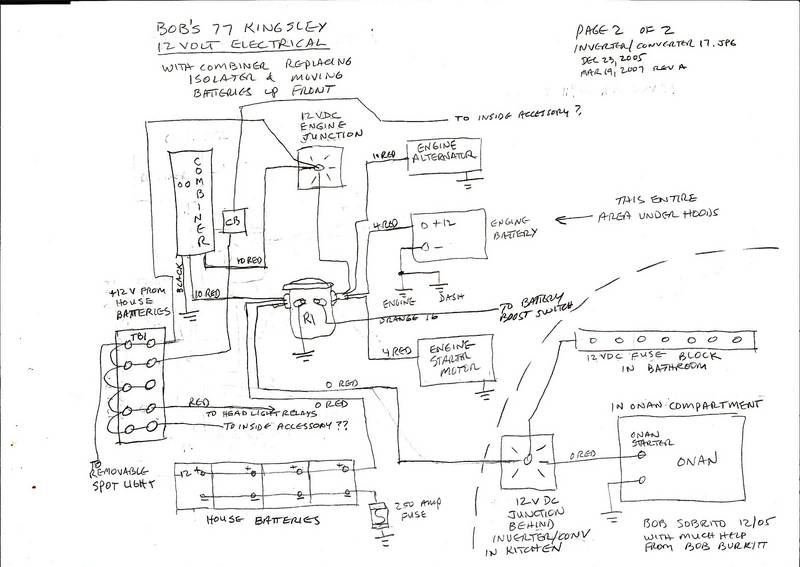 BOB'S 77 KINGSLEY
12 VOLT ELECTRICAL
WITH COMBINER REPLACING
ISOLATER & MOVING
BATTERIES UP FRONT
PAGE 2 OF 2
INVERTER/CONVERTER 17.JPG
DEC 23, 2005
MAR 19, 2007 REV A
TO INSIDE ACCESSORY?
12 VDC
ENGINE
JUNCTION
COMBINER
CB
10 RED
ENGINE
ALTERNATOR
4 RED
+12
-
ENGINE
BATTERY
THIS ENTIRE
AREA UNDER HOODS
10 RED
BLACK
10 RED
ENGINE
DASH
+12 V FROM
HOUSE
BATTERIES
R1
ORANGE 16
TO BATTERY
BOOST SWITCH
TB1
4 RED
ENGINE
STARTER
MOTOR
12VDC FUSE BLOCK
IN BATHROOM
0 RED
RED
0 RED
TO HEAD LIGHT RELAYS
TO INSIDE ACCESSORY??
IN ONAN COMPARTMENT
ONAN
STARTER
ONAN
0 RED
TO
REMOVABLE
SPOT LIGHT
12 +
+
+
+
-
HOUSE BATTERIES
250 AMP
FUSE
12 V DC
JUNCTION
BEHIND
INVERTER/CONV
IN KITCHEN
BOB SOBRITO 12/05
WITH MUCH HELP
FROM BOB BURKITT